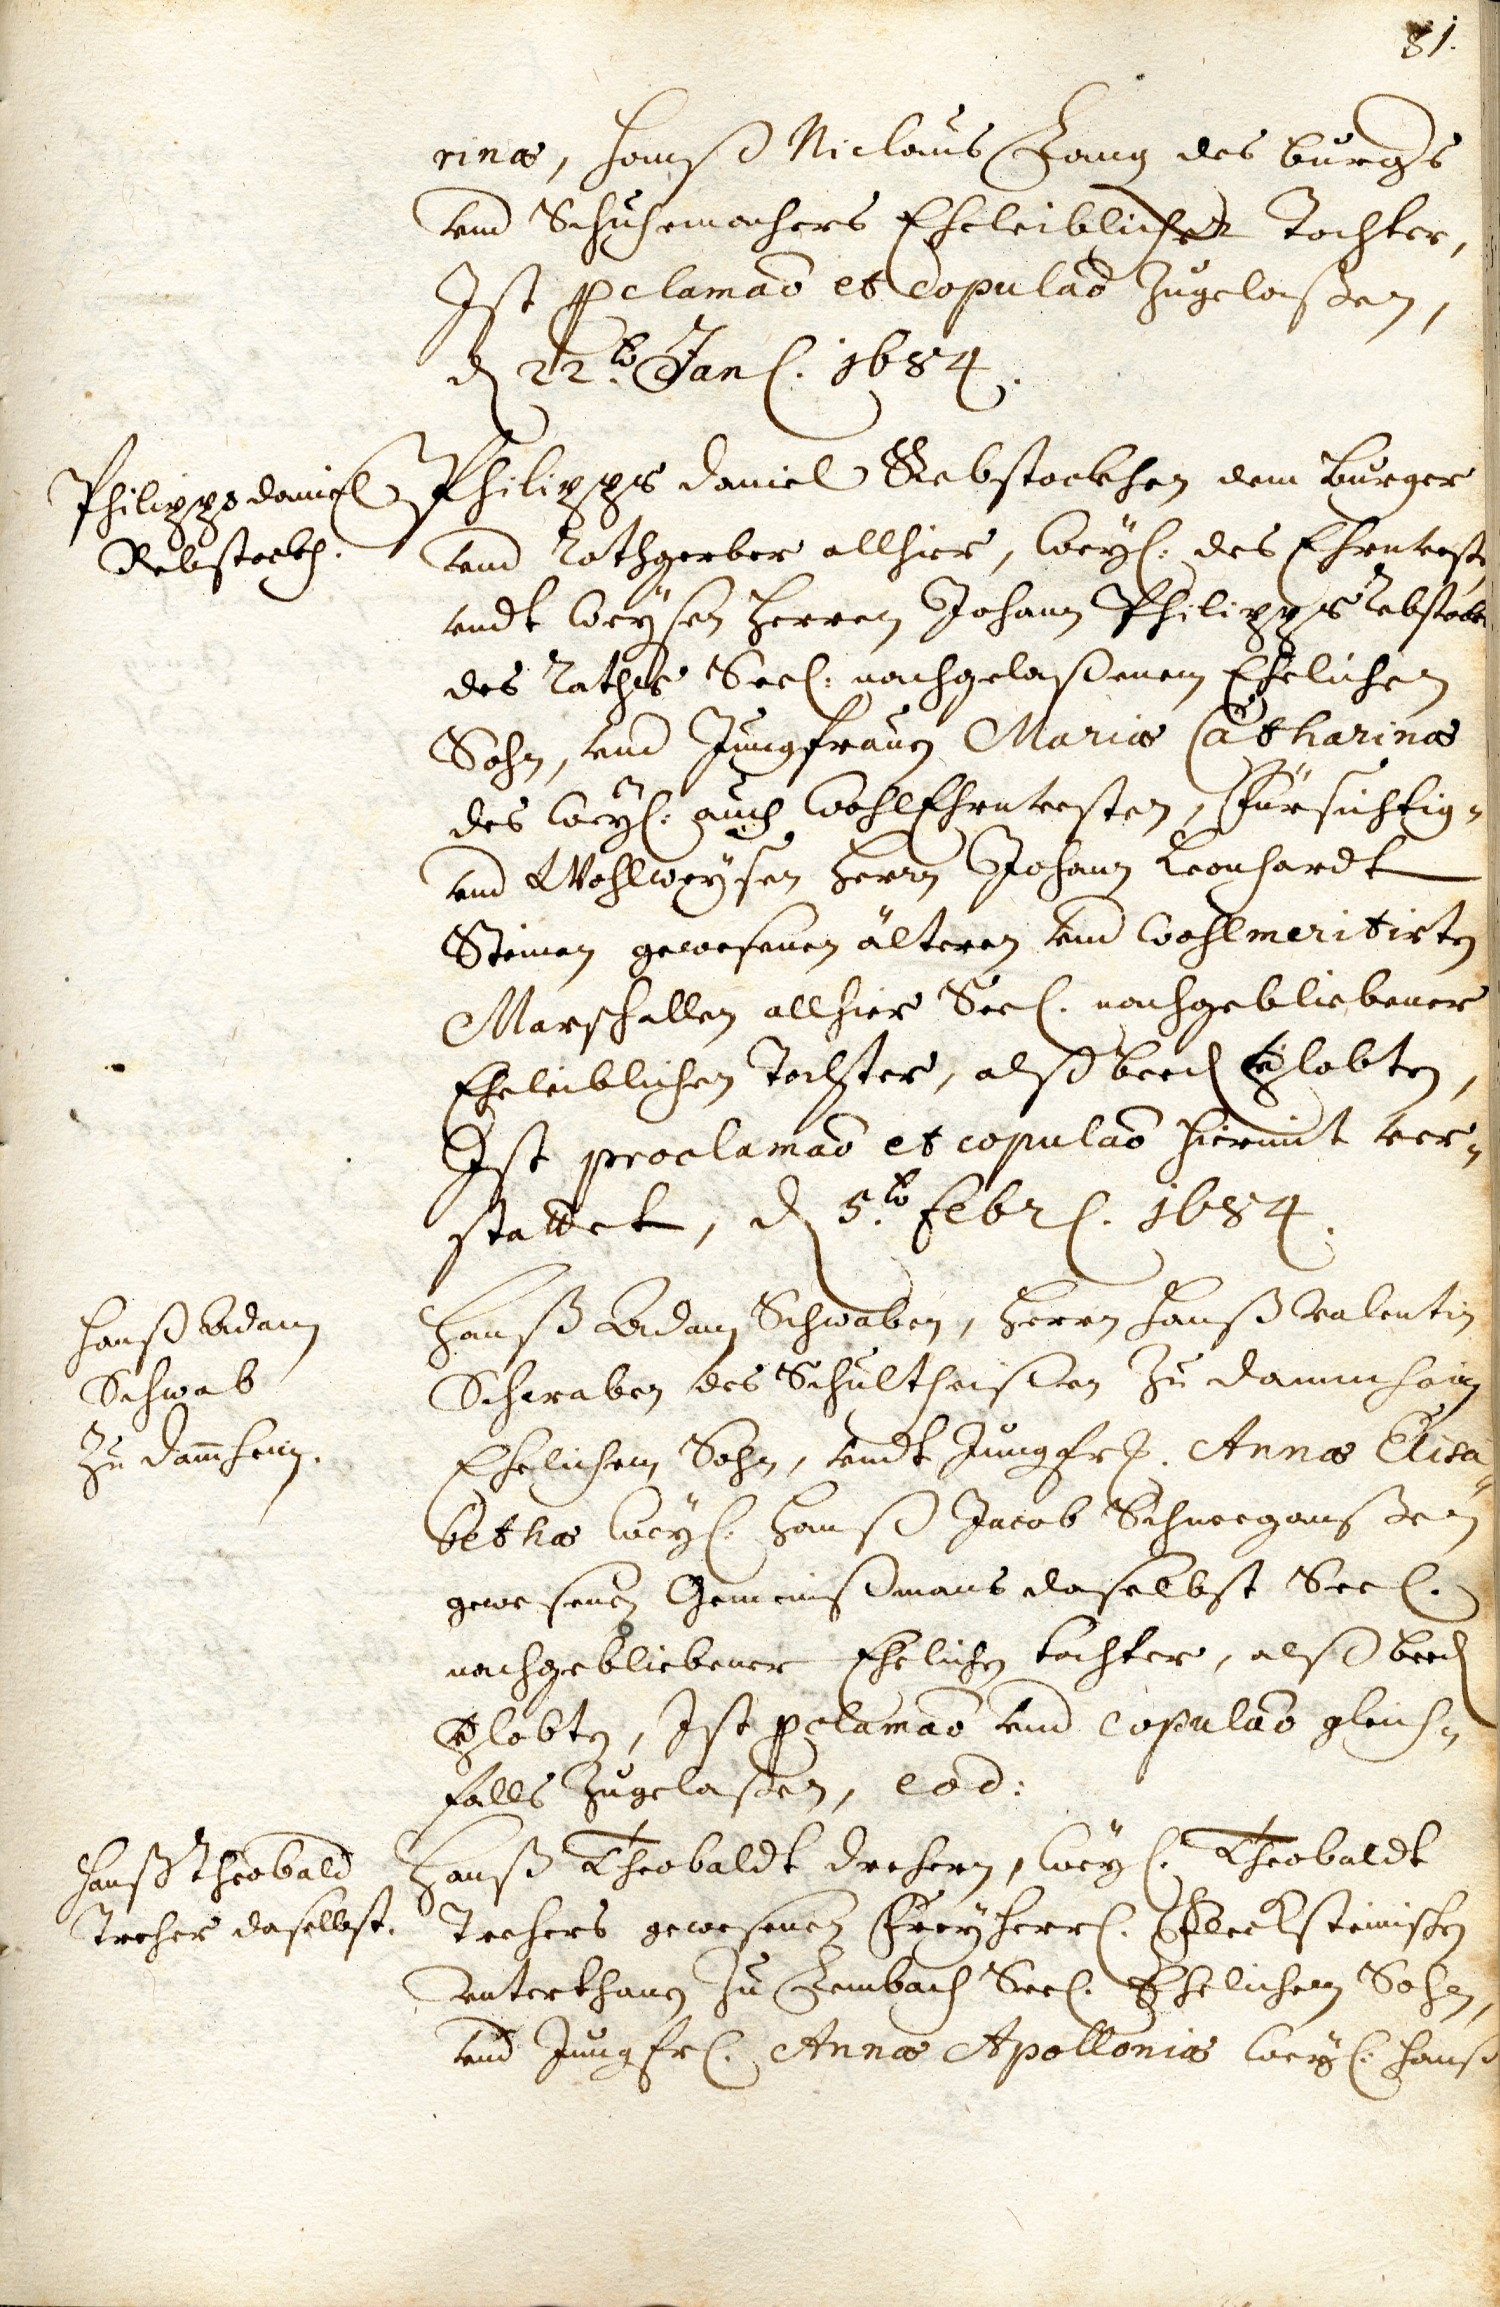 81.
rinæ, Hanß Niclaus Lang des burgs
und Schuhemachers Eheleiblicher Tochter,
Ist pclamaō et Copulaō zugelaßen,
d 22.to Jan. 1684.
Philipps Daniel
Rebstockh.
Philipps Daniel Rebstockhen dem Burger
und Rothgerber allhier, Weyl. des Ehrnvest
undt Weysen Herren Johann Philipps Rebstockh
des Raths Seel. nachgelaßenem Ehelichen
Sohn, und Jungfrauen Mariæ Catharinæ
des Weyl. auch WohlEhrnvesten, Fürsichtig-
und Wohlweysen Herrn Johann Leonhardt
Steinen gewesenen älteren und Wohlmeritirten
Marschallen allhier Seel. nachgebliebener
Eheleiblichen Tochter, alß beed Vlobten,
Ist proclamaō et copulaō hiermit ver-
stattet, d 5.to Febr. 1684.
Hanß Adam
Schwab
Zu Dam̄heim.
Hanß Adam Schwaben, Herrn Hanß Valentin
Schwaben des Schultheißen Zu Dammheim
Ehelichem Sohn, undt Jungfr. Annæ Elisa-
bethæ Weyl. Hanß Jacob Schneeganßen
gewesenen Gemeinßmans daselbst Seel.
nachgebliebener Ehelichen tochter, alß beed
Vlobten, Ist pclamaō und copulaō gleich-
falls Zugelaßen, eod:
Hanß Theobald
Treher daselbst.
Hanß Theobaldt Drehern, Weyl. Theobaldt
Trehers gewesenen Freyherrl. Fleckhsteinischen
Unterthanen Zu Lembach Seel. Ehelichem Sohn,
und Jungfr. Annæ Apolloniæ Weyl. Hanß